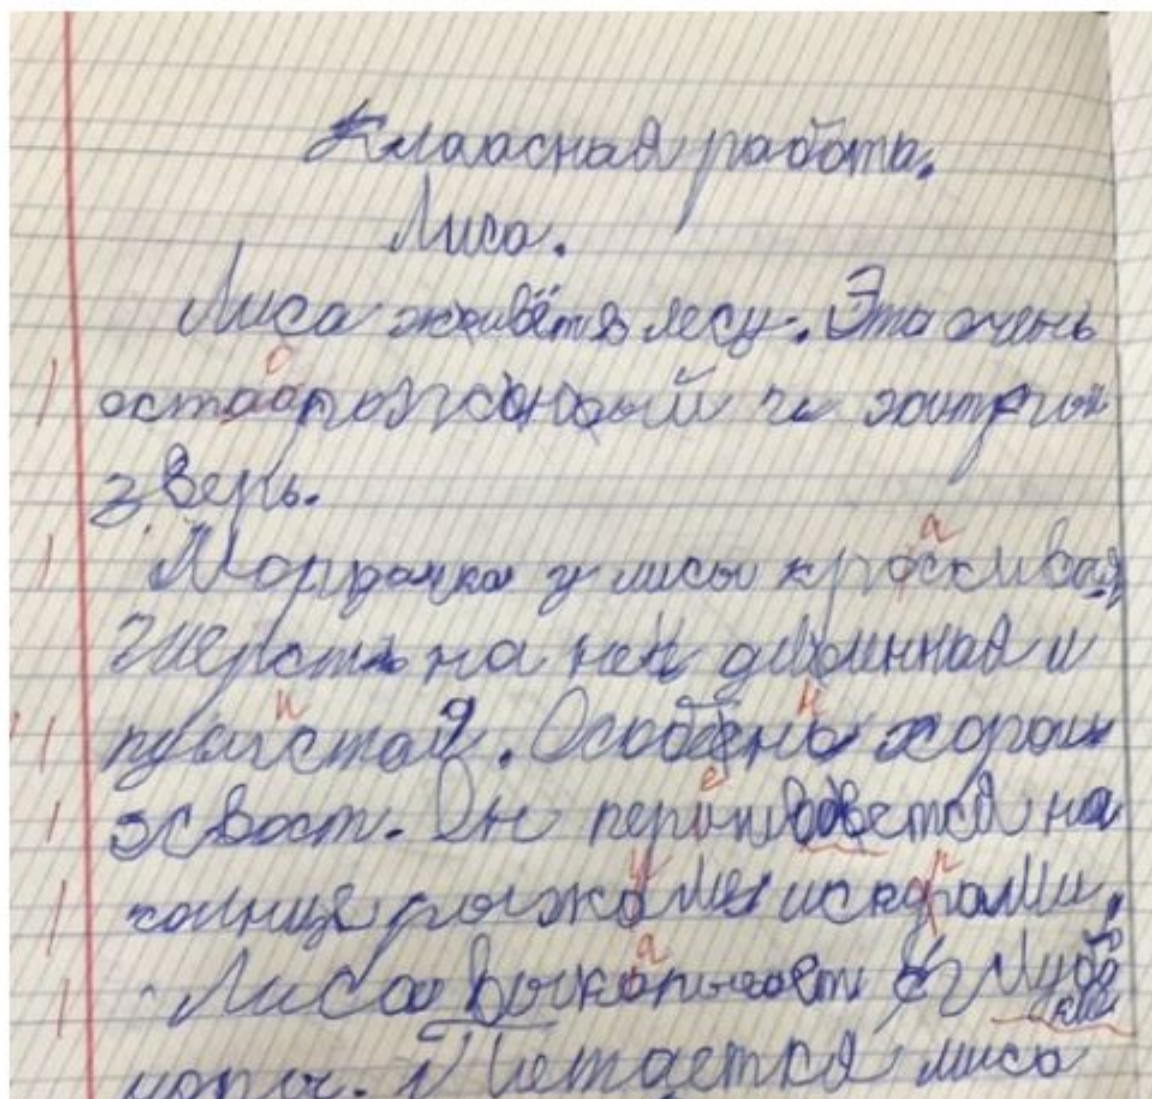 Клаасная работа.
Лиса.
Лиса живёт в лесу. Эта очень
остаарожный и хитрый
зверь.
Мордочка у лисы красивая
Шерсть на ней длинная и
пушистая. Особенно хорош
хвост. Он
солнце рыжими искрами.
Лиса выкапывает
норы. Питается лиса